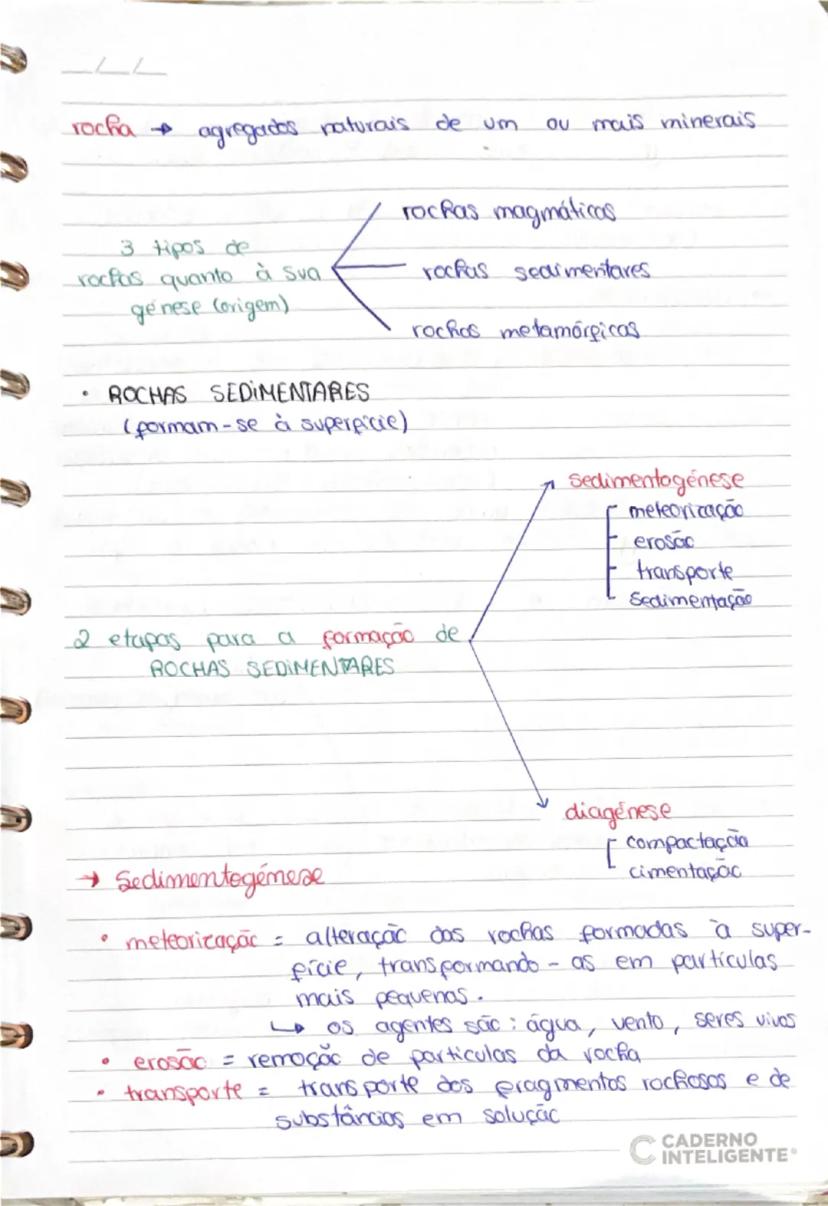 rocha → agregados naturais de um ou mais minerais
rochas magmáticas
3 tipos de
rochas quanto à sua
génese (origem)
rochas sedimentares
rochas metamórficas
• ROCHAS SEDIMENTARES
(formam-se à superfície)
sedimentogénese
meteorização
erosão
transporte
sedimentação
2 etapas para a formação de
ROCHAS SEDIMENTARES
diagénese
compactação
cimentação
→ Sedimentogénese
• meteorização = alteração das rochas formadas à super-
fície, transformando-as em partículas
mais pequenas.
↳ os agentes são: água, vento, seres vivos
• erosão = remoção de partículas da rocha
• transporte = transporte dos fragmentos rochosos e de
substâncias em solução
CADERNO
INTELIGENTE®